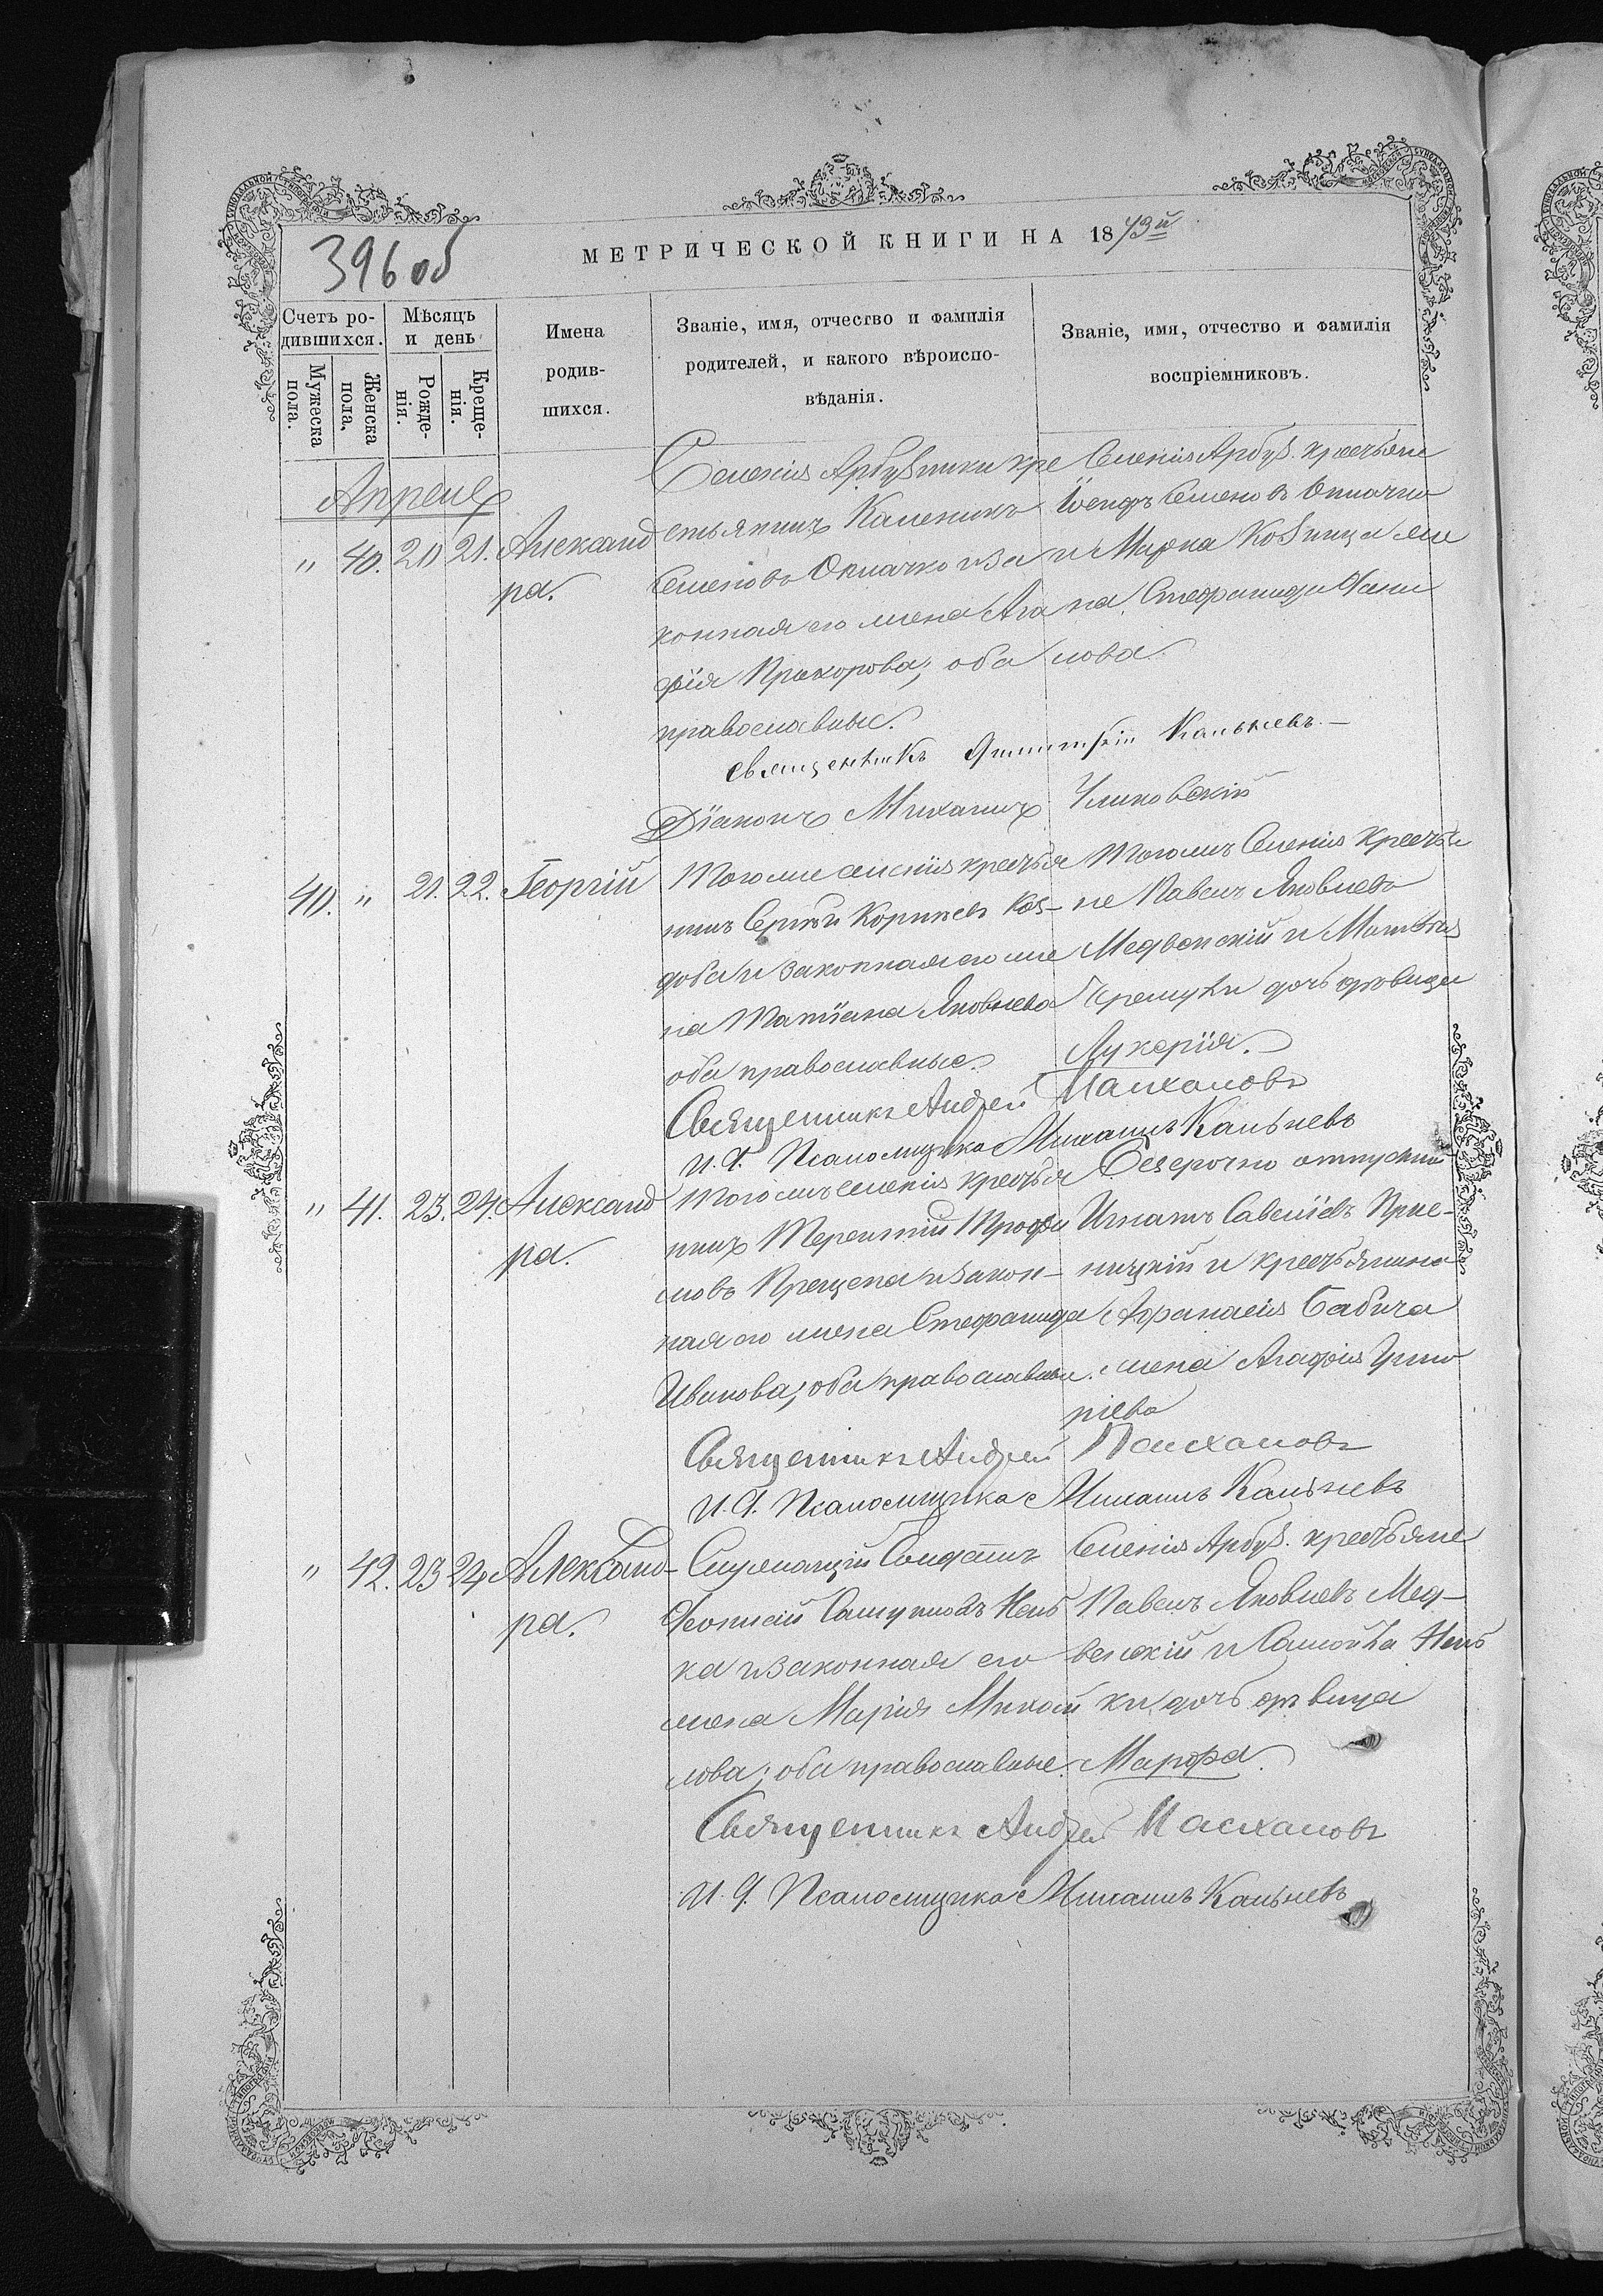 396 об
МЕТРИЧЕСКОЙ КНИГИ НА 1873й
Счетъ ро-
дившихся.
Мужеска
пола.
Женска
пола.
Мѣсяцъ
и день
Рожде-
нія.
Креще-
нія.
Имена
родив-
шихся.
Званіе, имя, отчество и фамилія
родителей, и какого вѣроиспо-
вѣданія.
Званіе, имя, отчество и фамилія
воспріемниковъ.
Апрель
" 40. 20 21. Александ
ра.
Селенія Арбузинки кре
стьянинъ Каленикъ
Семеновъ Окпачко и за
конная его жена Ага
фія Прохорова; оба
православные.
Селенія Арбуз. крестьяне
Іосифъ Семеновъ Окпачко
и Марка Козницы же
на Стефанида Дани
лова
Священникъ Димитрій Кальневъ
Діаконъ Михаилъ
40. " 21. 22. Георгій
Того же селенія крестья
нинъ Сергѣй Корнѣевъ Коз-
доба и законная его же
на Татіана Яковлева
оба православные.
Того жъ Селенія Крестья
не Павелъ Яковлевъ
Медвенскій и Матвѣя
Черемухи дочь дѣвица
Лукерія.
Священникъ Андрей
И. Д. Псаломщика Михаилъ Кальневъ
" 41. 23. 24. Александ
ра.
Того жъ селенія крестья
нинъ Терентій Трофи
мовъ Прещепа и закон-
ная его жена Стефанида
Иванова; оба православные.
Безсрочно отпускной
Игнатъ Савеліевъ
и крестьянина
Афанасія Бабича
жена Агафія Григо
рьева
Священникъ Андрей
И. Д. Псаломщика Михаилъ Кальневъ
" 42. 23 24 Александ-
ра.
Служащій Солдатъ
Фотій
ка и законная его
жена Марія Михай
лова; оба православные.
Селенія Арбуз. крестьяне
Павелъ Яковлевъ Мед-
венскій и Самойла
ки дочь дѣвица
Марфа.
Священникъ Андрей
И. Д. Псаломщика Михаилъ Кальневъ